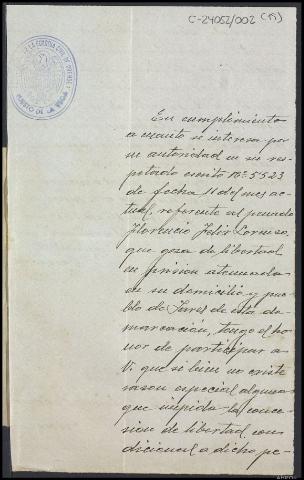 C-24052/002 (15)
DE LA GUARDIA CIVIL DE
PUESTO DE LA
En cumplimiento
a cuanto se interesa por
su autoridad en su res-
petado escrito Nº 5.523
de fecha 11 del mes ac-
tual, referente al penado
Florencio Felix
que goza de libertad
en prision atenuada
en su domicilio y pue-
blo de de esta de-
marcación, tengo el ho-
nor de participar a
V. que si bien no existe
rason especial alguna
que impida la conce-
sion de libertad con-
dicional a dicho pe-